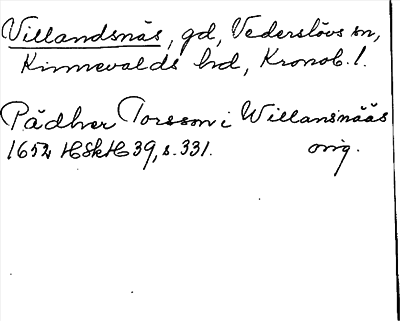 Villandsnäs, gd, Vederslövs sn,
Kinnevalds hd, Kronob. l.
Pädher Torsson i Willansnääs
1652 HSkH 39, s. 331. orig.